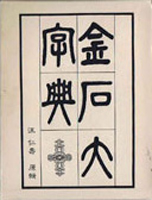 金石大
字典
汪仁壽 原輯